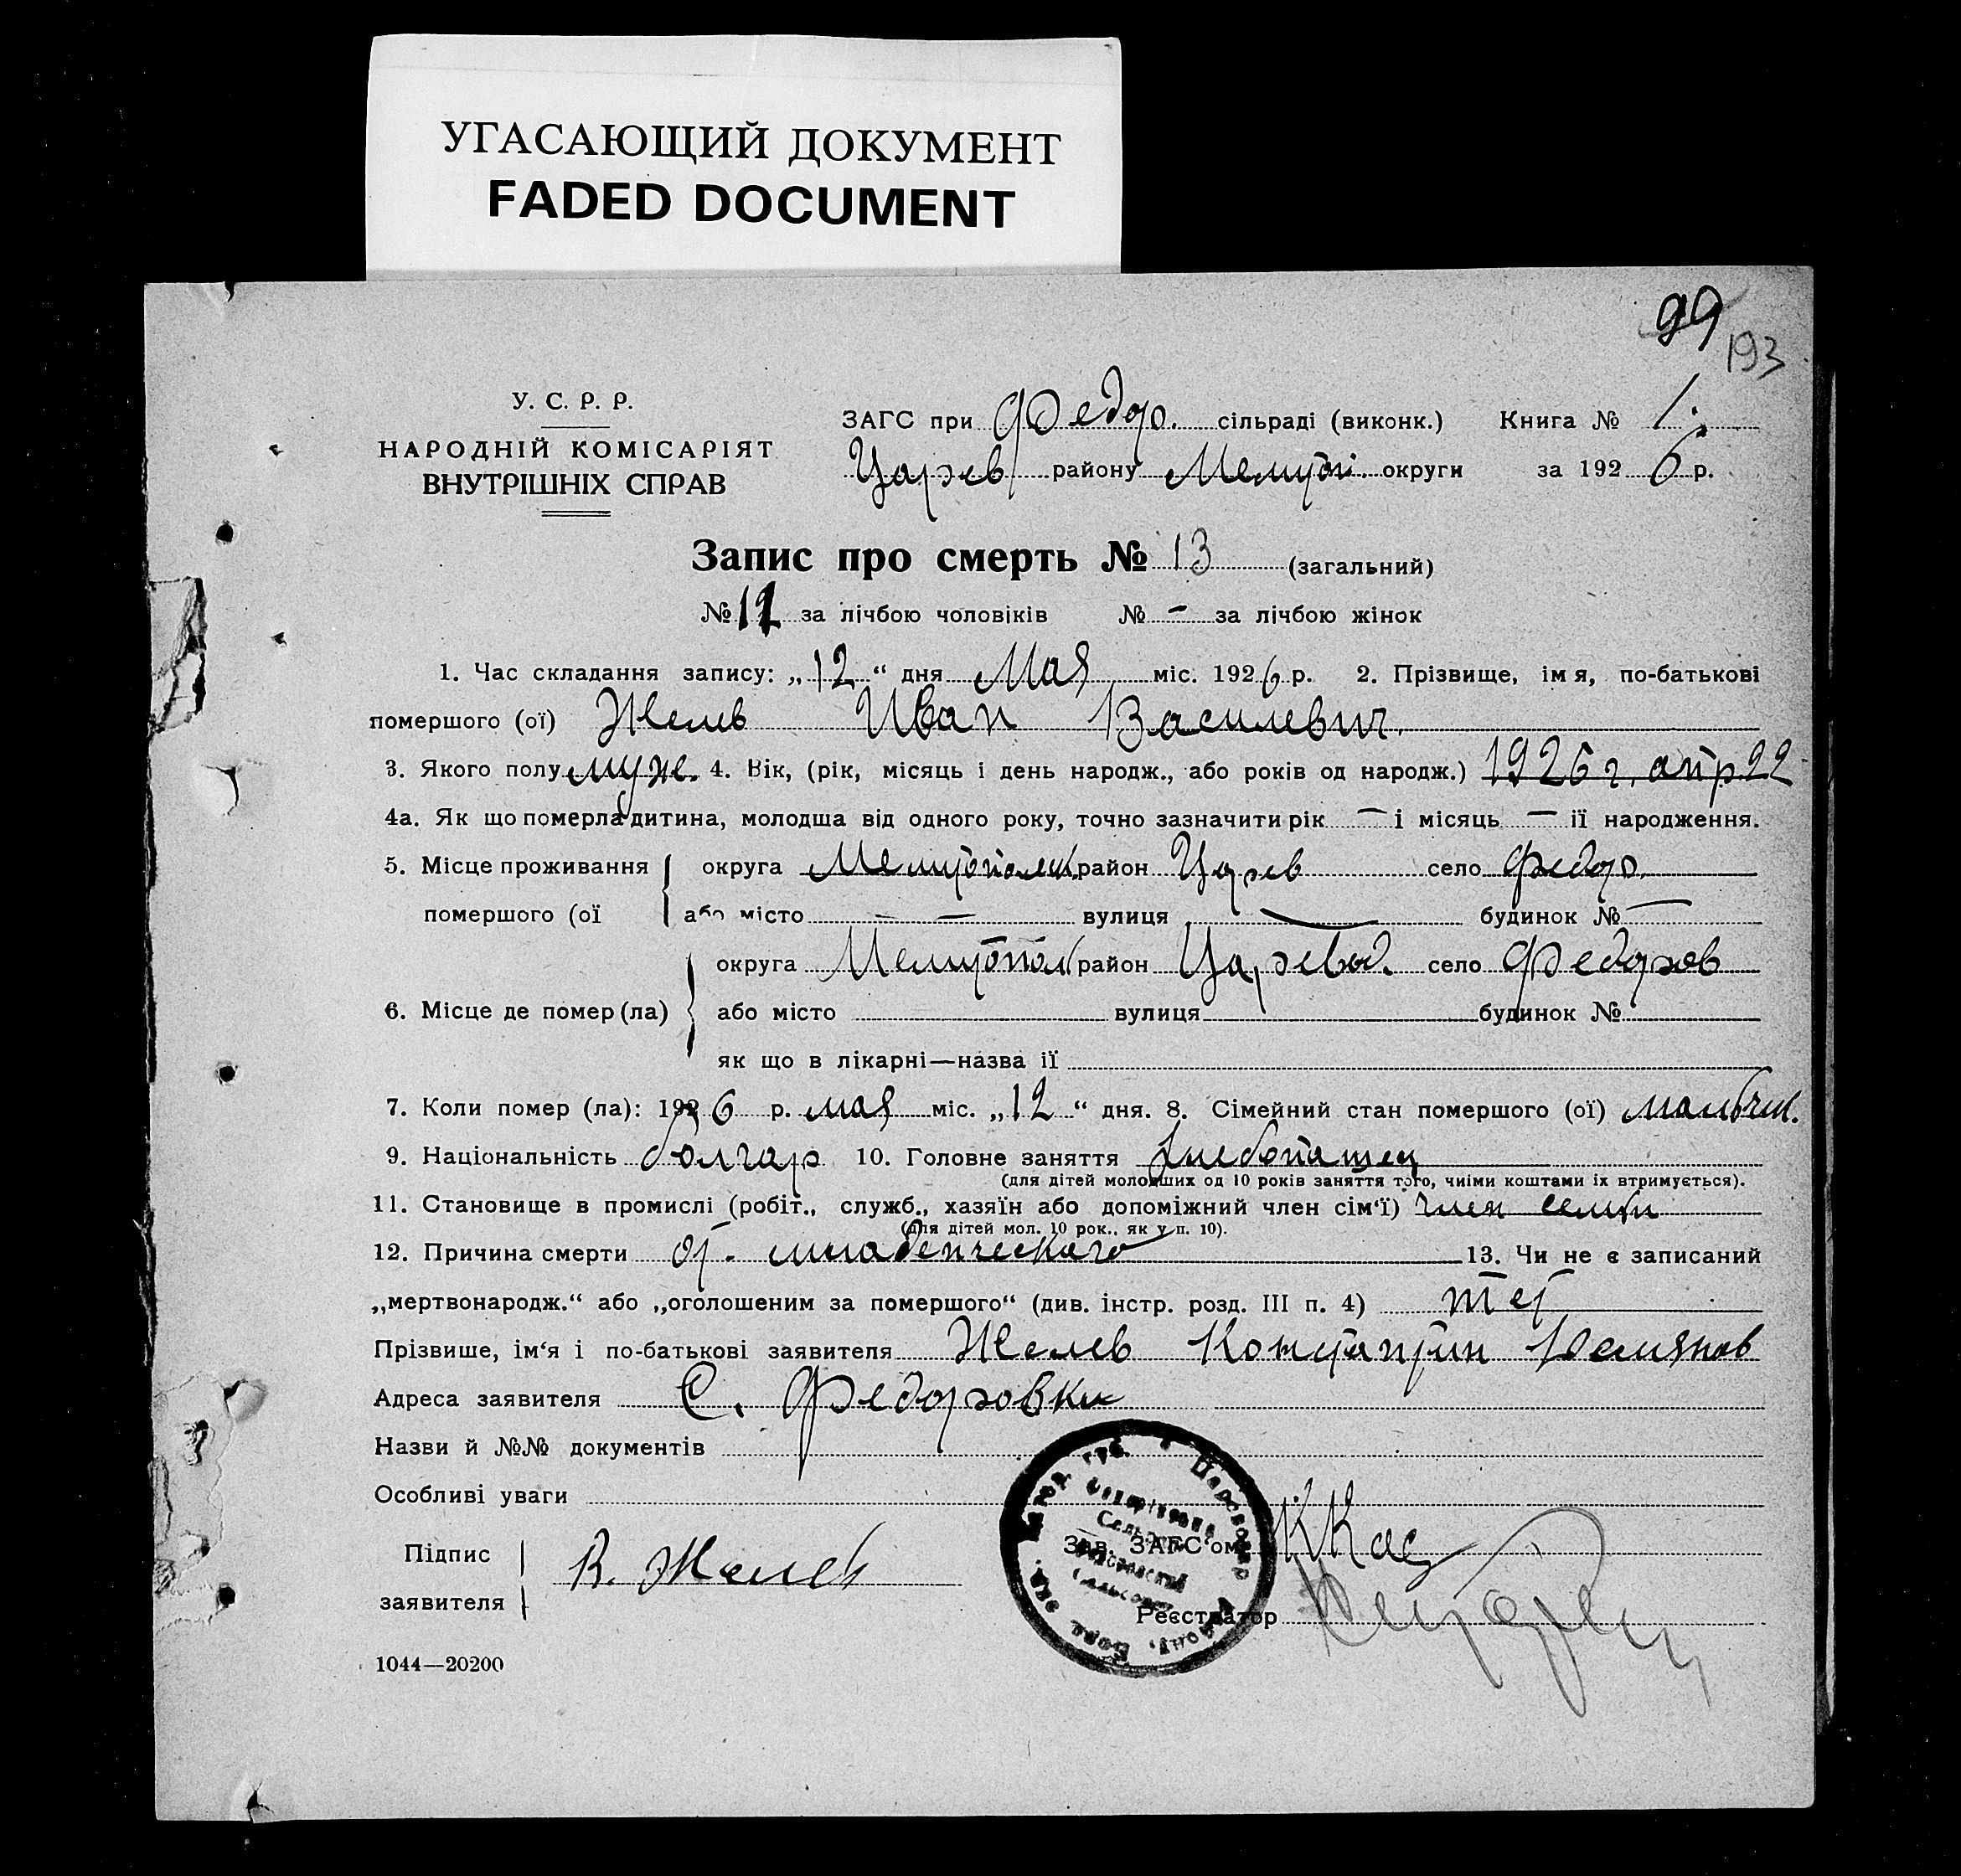 УГАСАЮЩИЙ ДОКУМЕНТ
FADED DOCUMENT
99
193
У. С. Р. Р.
НАРОДНІЙ КОМІСАРІЯТ
ВНУТРІШНІХ СПРАВ
ЗАГС при Федор. сільраді (виконк.) Книга № 1
Царев району Мелитоп. округи за 1926 р.
Запис про смерть № 13 (загальний)
№ 12 за лічбою чоловіків № - за лічбою жінок
1. Час складання запису: „12“ дня Мая міс. 1926 р. 2. Прізвище, імя, по-батькові
помершого (ої) Желев Иван Василевич.
3. Якого полу муж. 4. Вік, (рік, місяць і день народж., або років од народж.) 1926 г. апр. 22
4а. Як що померла дитина, молодша від одного року, точно зазначити рік — і місяць — її народження.
5. Місце проживання помершого (ої
округа Мелитопольск. район Царев село Федор.
або місто — — вулиця — будинок № —
6. Місце де помер (ла)
округа Мелитопол район Царевод. село Федоров
або місто вулиця будинок №
як що в лікарні—назва ії
7. Коли помер (ла): 1926 р. мая міс. „12“ дня. 8. Сімейний стан помершого (ої) мальчик.
9. Національність болгар 10. Головне заняття хлебопашец
(для дітей молодших од 10 років заняття того, чиіми коштами іх втримується).
11. Становище в промислі (робіт., служб., хазяїн або допоміжний член сім‘ї) член семьи
(для дітей мол. 10 рок., як у п. 10).
12. Причина смерти от младенческаго 13. Чи не є записаний
„мертвонародж.“ або „оголошеним за помершого“ (див. інстр. розд. III п. 4) нет
Прізвише, ім‘я і по-батькові заявителя Желев Константин
Адреса заявителя С. Федоровки
Назви й №№ документів
Особливі уваги
Підпис заявителя К. Желев
Зав. ЗАГС‘ом
Реєстратор
1044—20200